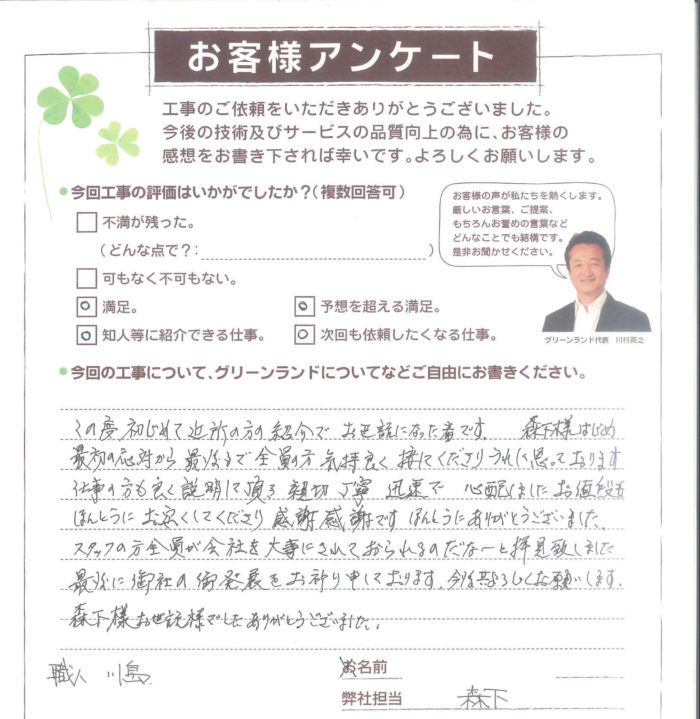 お客様アンケート
工事のご依頼をいただきありがとうございました。
今後の技術及びサービスの品質向上の為に、お客様の
感想をお書き下されば幸いです。よろしくお願いします。
今回工事の評価はいかがでしたか?(複数回答可)
不満が残った。
(どんな点で?: )
可もなく不可もない。
満足。 予想を超える満足。
知人等に紹介できる仕事。 次回も依頼したくなる仕事。
お客様の声が私たちを熱くします。
厳しいお言葉、ご提案、
もちろんお誉めの言葉など
どんなことでも結構です。
是非お聞かせください。
グリーンランド代表 川村英之
今回の工事について、グリーンランドについてなどご自由にお書きください。
この度初じめて近所の方の紹介で お世話になった者です。 森下様はじめ
最初の応対から最後まで全員の方 気持良く 接てくださりうれしく思っております
仕事の方も良く説明して頂き 親切 丁寧 迅速で 心配しました お値段も
ほんとうに お安くしてくださり 感謝感謝です ほんとうにありがとうございました。
スタッフの方全員が会社を大事にされておられるのだなーと拝見致しました
最後に御社の御発展をお祈り申しております。今後共よろしくお願いします。
森下様お世話様でした ありがとうございました。
職人 川島
お名前
弊社担当 森下